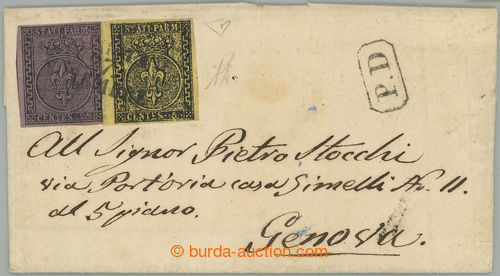 STATI PARM
STATI PARM
CENTES. 25
CENTES. 5
P.D
All Signor Pietro Stocchi
via Portoria casa Simelli No. 11.
al 5 piano.
Genova.
© burda-auction.com